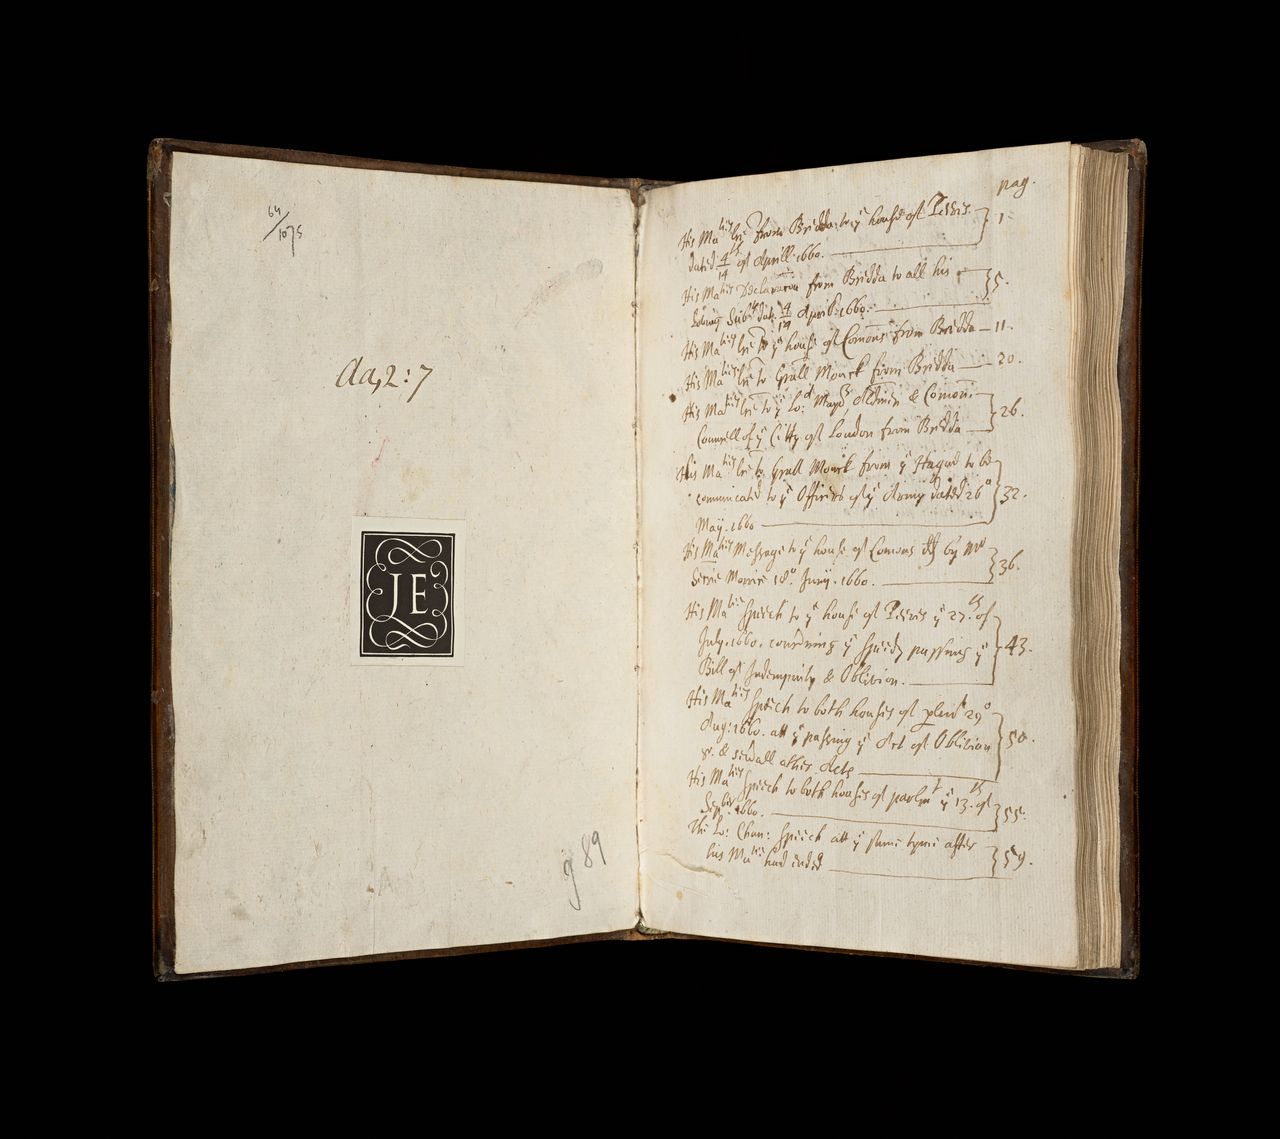 64/1075
Aa,2:7
JE
g 89
pag.
His Maties lre from Bredda to ye house of Peeres } 1
dated 4/14th of Aprill. 1660.
His Maties Declaracon from Bredda to all his } 5.
loving Subts dat. 4/14 April: 1660.
His Maties lre to ye house of Comons from Bredda — 11.
His Maties lre to Grall Monck from Bredda — 20.
His Maties lre to ye Lo: Mayor, Aldmen & Comon } 26.
Councell of ye Citty of London from Bredda
His Maties lre to Grall Monck from ye Hague to be
comunicated to ye Officers of ye Army dated 26o } 32.
May. 1660
His Maties Message to ye house of Comons by Mr } 36.
Secrie Morrice 18o. June. 1660.
His Maties speech to ye house of Peeres ye 27th. of
July. 1660. concerning ye speedy passing ye } 43.
Bill of Indempnity & Oblivion.
His Maties speech to both houses of plemt 29o
Aug: 1660. att ye passing ye Act of Oblivion } 50.
&. & severall other Acts
His Maties speech to both houses of parlemt ye 13th. of
Septber 1660. } 55.
The Lo: Chan: speech att ye same tyme after
his Matie had ended } 59.